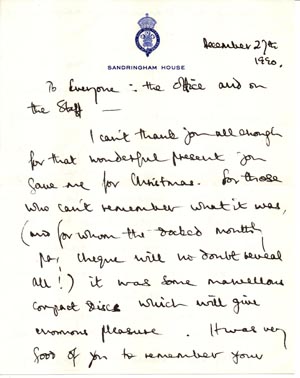 December 27th
1990.
SANDRINGHAM HOUSE
To Everyone in the Office and on
the Staff —
I can't thank you all enough
for that wonderful present you
gave me for Christmas. For those
who can't remember what it was,
(and for whom the docked monthly
pay cheque will no doubt reveal
all!) it was some marvellous
compact discs which will give
enormous pleasure. It was very
good of you to remember your